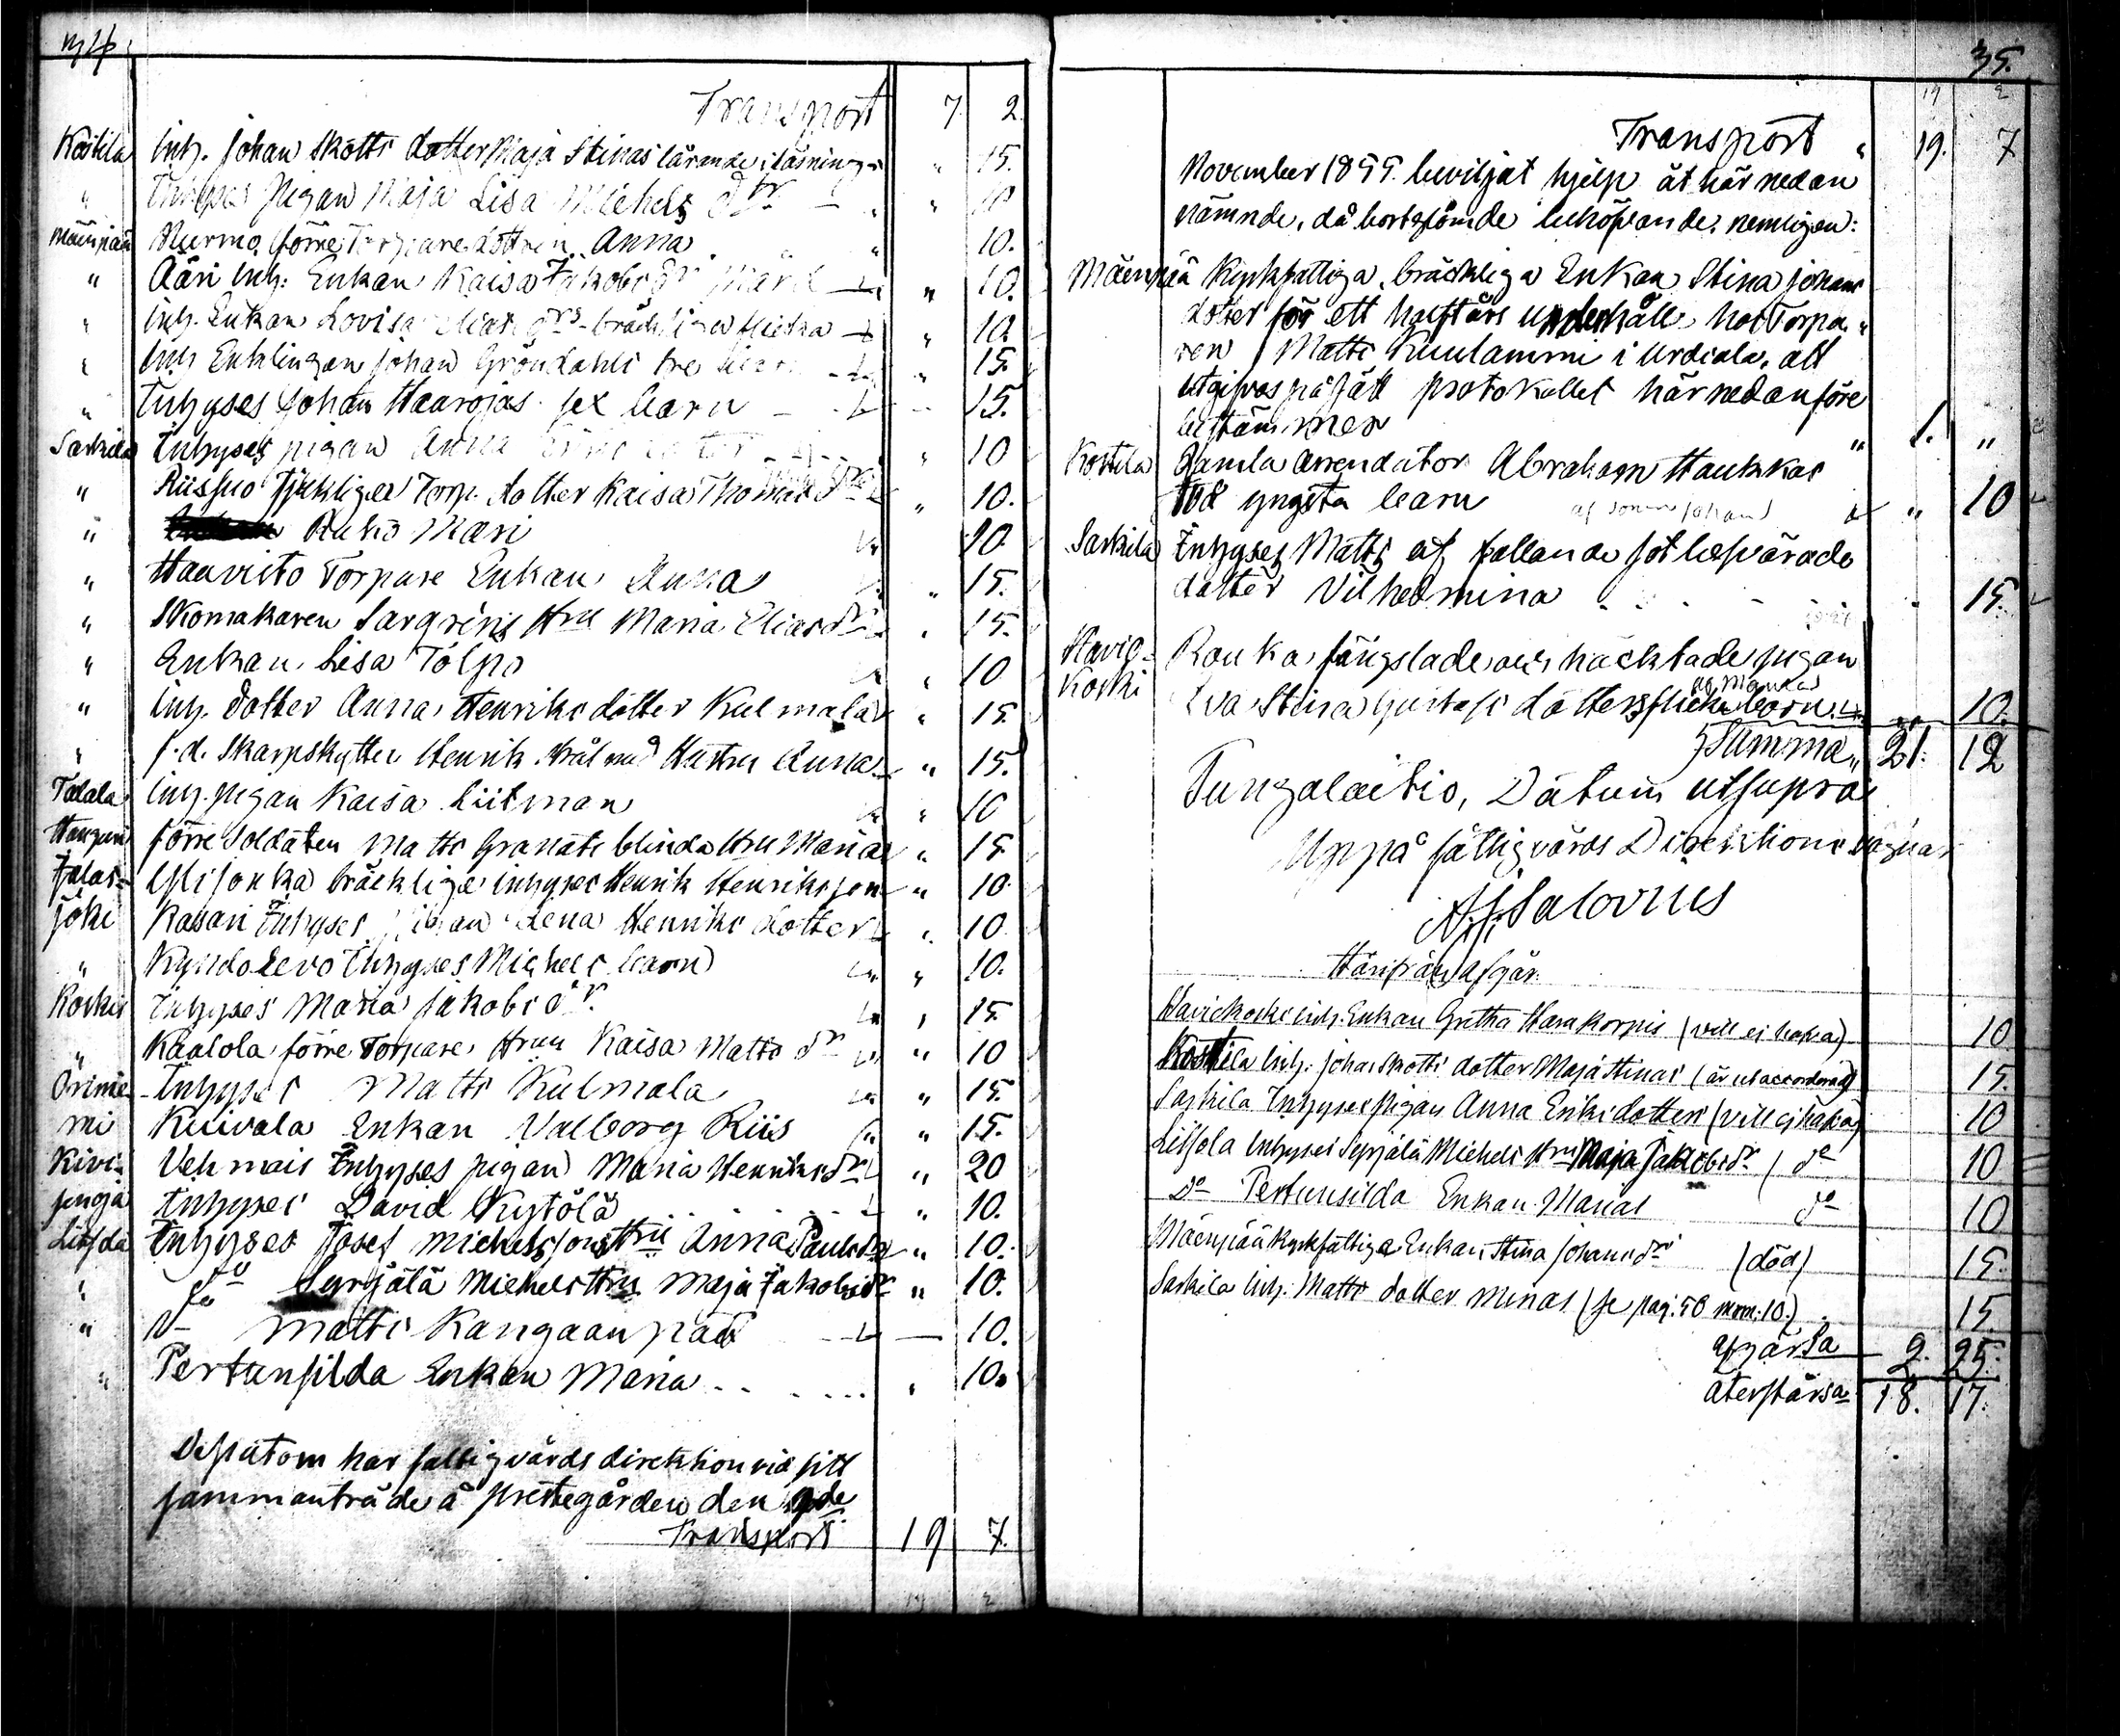 Transport 7 2
Kostila Inh. Johan Skotts dotter Maja Stinas lärande i läsning " 15.
" Inhyses Pigan Maja Lisa Michels dtr " 10
Mäenpää Nurmo förre Torpare dottren Anna " 10.
" Ääri Inh. Enkan Kaisa Jakobs dr " 10.
" Inh. Enkan Lovisa Elias drs bräckliga flicka " 10.
" Inh Enklingen Johan Gröndahls tre barn " 15.
" Inhyses Johan Haarojas sex barn 15.
Sarkila Inhyses pigan Anna " 10
" Riissuo sjukliga Torp. dotter Kaisa Thomas dr " 10.
" Ruho Mari 20
" Haavisto Torpare Enkan Anna " 15.
" Skomakaren Sargrens Hru Maria Elias dr " 15.
" Enkan Lisa Tolpo " 10
" Inh. dotter Anna Henriks dotter Kulmala " 15.
" f.d. Skarpskytten Henrik Hustru Anna " 15.
Talala Inh. pigan Kaisa Liitman " 10
förre Soldaten Matts Granats blinda Hru Maria " 15
Jalas- bräcklige inhyses Henrik Henriksson " 10
joki Kasari Inhyses pigan Lena Henriks dotter " 10
" Inhyses Michels barn " 10.
Koskis Inhyses Maria Jakobs dr. " 15
" Kaalola förre Torpare Hrun Kaisa Matts dr " 10
Örinie- Inhyses Matts Kulmala " 15.
mi Kuivala Enkan Valborg Riis " 15.
Kivi- Vehmais Inhyses pigan Maria Henriks dr " 20
punoja Inhyses David Kytölä " 10.
Liisola Inhyses Josef Michelssons Hru Anna Pauls dr " 10.
" do Syrjälä Michels Hru Maja Jakobs dr " 10.
" do Matts Kangaanpää — 10.
" Pertunsilda Enkan Maria " 10.
Desutom har fattigvårds direktion vid sitt
sammanträde å prestegården den
Transport 19 7.
35.
Transport " 19. 7
November 1855. beviljat hjelp åt här nedan
nämnde, då bortglömde behöfvande, nemligen:
Mäenpää Kyrkfattiga, bräckliga Enkan Stina Johans
dotter för ett halftårs underhåll hos Torpa-
ren Matts Kuulammi i Urdiala, att
utgifvas på sätt protokollet här nedanföre
bestämmer " 1. "
Kostila Gamla Arrendator Abraham Haukkas
två yngsta barn af sonen Johan " 10
Sarkila Inhyses Matts af fallande sot besvärade
dotter Vilhelmina " 15.
Havis- Rouka, fängslade och häcktade pigan
koski Eva Stina Gustafs dotters flickebarn " 10.
Summa " 21. 12
Tungalaitio, Datum utsupra
Uppå fattigvårds Direktions vägnar
A.J. Salovius
Härifrån afgår:
Haviskoski inh. Enkan Gretha Harakorpis (vill ej hafva) 10
Kostila Inh. Johan Skotts dotter Maja Stinas (är utaccorderad) 15.
Sarkila Inhyses pigan Anna Eriks dotters (vill ej hafva) 10
Liisola Inhyses Syrjälä Michels Hru Maja Jakobs dr (do 10
do Pertunsilda Enkan Marias do 10
Mäenpää Kyrkfattiga Enkan Stina Johans drs (död) 15.
Sarkila Inh. Matts dotter Minas (se pag. 50 mom. 10.) 15
afgår Sa 2. 25.
återstår Sa 18. 17.